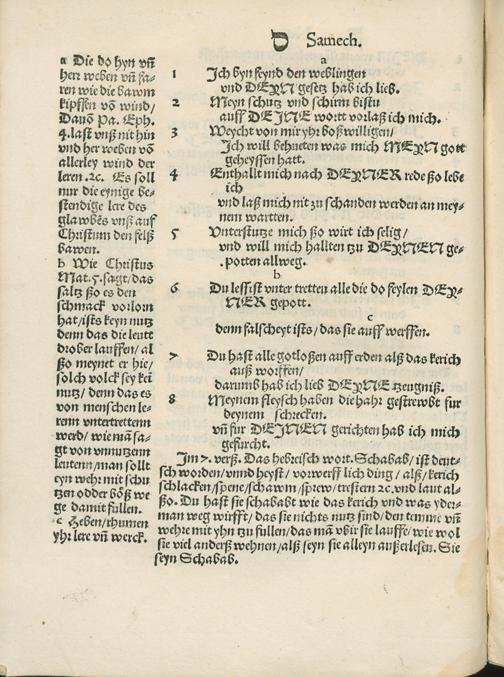 ס Samech.
a Die do hyn vñ
herr weben vñ fa-
ren wie die bawm
kipffen võ wind/
Dauõ Pa. Eph.
4. last vnß nit hin
vnd her weben võ
allerley wind der
leren .2c. Es soll
nur die eynige be-
stendige lere des
glawbēs vnß auf
Christum den felß
bawen.
b Wie Christus
Mat. 5. sagt/das
saltz ßo es den
schmack vorlorn
hat/ists keyn nutz
denn das die leutt
drober lauffen/ al
ßo meynet er hie/
solch volck sey keī
nutz/ denn das es
von menschen le-
renn vntertrettenn
werd/ wie mā sa-
get von vnnutzenn
leutenn/man sollt
eyn wehr mit schu
tzen odder bößs we
ge damit fullen.
c Heben/rhumen
yhr lere vñ werck.
a
1 Ich byn feynd den weblingen
vnd DEYN gesetz hab ich lieb.
2 Meyn schutz vnd schirm bistu
auff DEINE wortt vorlaß ich mich.
3 Weycht von mir yhr boßwilligen/
Ich will behueten was mich MEYN gott
geheyssen hatt.
4 Enthallt mich nach DEYNER rede ßo lebe
ich
vnd laß mich nit zu schanden werden an mey-
nem wartten.
5 Vnterstutze mich ßo wirt ich selig/
vnd will hallten tzu DEYNEN ge-
potten allweg.
b
6 Du lessist vnter tretten alle die do feylen DEY-
NER gepott.
c
denn falscheyt ists/ das sie auff werffen.
7 Du hast alle gotloßen auff erden alß das kerich
auß worffen/
darumb hab ich lieb DEYNE tzeugniß.
8 Meynem fleysch haben die har gestrewbt fur
deynem schrecken.
vñ fur DEINEN gerichten hab ich mich
gefurcht.
Im 7. verß. Das hebreisch wort. Schabab/ ist deut-
sch worden/vnnd heyst/ vorwerff lich ding/ alß/kerich
schlacken/spene/schawm/sprew/trestern 2c. vnd laut al-
ßo. Du hast sie schababt wie das kerich vnd was yder-
man weg wirfft/ das sie nichts nutz sind/ den temme vñ
wehre mit yhn zu fullen/das mā vbir sie lauffe/ wie wol
sie viel anderß wehnen/alß seyn sie alleyn außerlesen. Sie
seyn Schabab.